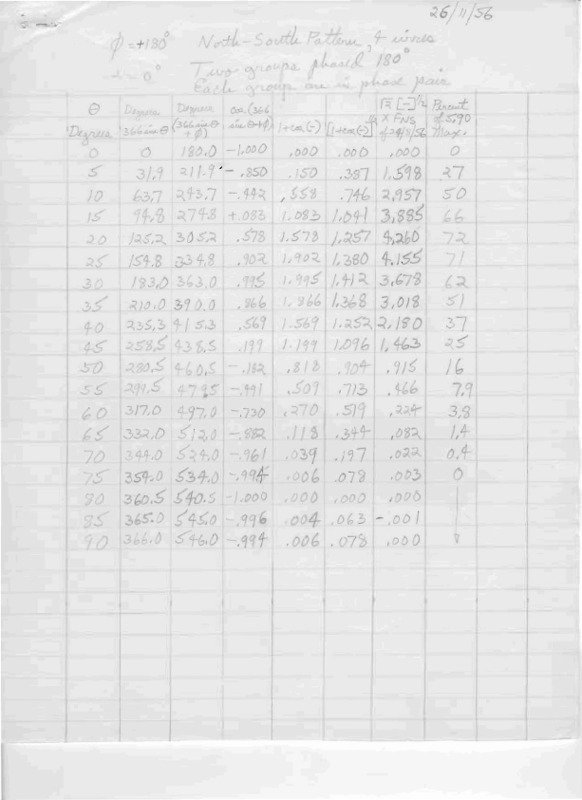 26/11/56
ϕ = +180° North-South Pattern, 4 wires
α = 0° Two groups phased 180°
Each group are in phase pair
θ Degrees | Degrees 366 sin θ | Degrees (366 sin θ + ϕ) | cos (366 sin θ + ϕ) | 1+cos(-) | [1+cos(-)]½ | √2 [-]½ × FNS | Percent of 5.90 Max.
0 0 180.0 -1.000 .000 .000 .000 0
5 31.9 211.9 -.850 .150 .387 1.598 27
10 63.7 243.7 -.442 .558 .746 2.957 50
15 94.8 274.8 +.083 1.083 1.041 3.885 66
20 125.2 305.2 .578 1.578 1.257 4.260 72
25 154.8 334.8 .902 1.902 1.380 4.155 71
30 183.0 363.0 .995 1.995 1.412 3.678 62
35 210.0 390.0 .866 1.866 1.368 3.018 51
40 235.3 415.3 .569 1.569 1.252 2.180 37
45 258.5 438.5 .199 1.199 1.096 1.463 25
50 280.5 460.5 -.182 .818 .904 .915 16
55 299.5 479.5 -.491 .509 .713 .466 7.9
60 317.0 497.0 -.730 .270 .519 .224 3.8
65 332.0 512.0 -.882 .118 .344 .082 1.4
70 344.0 524.0 -.961 .039 .197 .022 0.4
75 354.0 534.0 -.994 .006 .078 .003 0
80 360.5 540.5 -1.000 .000 .000 .000
85 365.0 545.0 -.996 .004 .063 -.001
90 366.0 546.0 -.994 .006 .078 .000